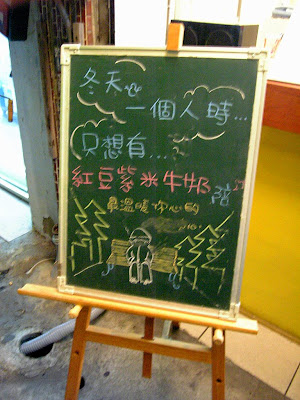 冬天
一個人時...
只想有...
紅豆紫米牛奶 陪
最溫暖你心的